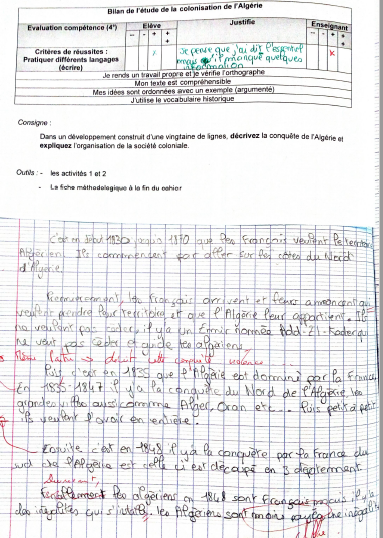 Bilan de l'étude de la colonisation de l'Algérie
Evaluation compétence (4°)
Elève
Justifie
Enseignant
-- - + ++
-- - + ++
Critères de réussites :
Pratiquer différents langages
(écrire)
x
Je pense que j'ai dit l'essentiel
mais il manque quelques
information
x
Je rends un travail propre et je vérifie l'orthographe
Mon texte est compréhensible
Mes idées sont ordonnées avec un exemple (argumenté)
J'utilise le vocabulaire historique
Consigne :
Dans un développement construit d'une vingtaine de lignes, décrivez la conquête de l'Algérie et
expliquez l'organisation de la société coloniale.
Outils : - les activités 1 et 2
- La fiche méthodologique à la fin du cahier
C'est en début 1830 jusqu'à 1870 que les Français veulent le territoire
Algérien. Ils commencent par aller sur les côtes du Nord
d'Algérie.
Premièrement, les Français arrivent et leurs annonçant qui
veulent prendre leur territoire et que l'Algérie leur appartient. Ils
ne veulent pas céder, il y a un Emir nommée Abd-El-Kader qui
ne veut pas céder et guide les algériens.
décrit cette conquête violence
Puis c'est en 1835 que l'Algérie est dominé par la France
En 1835-1847 il y a la conquête du Nord de l'Algérie, les
grandes villes aussi comme Alger, Oran etc... Puis petit à petit
ils veulent l'avoir en entière.
Ensuite c'est en 1848 il y a la conquère par la France du
sud de l'Algérie est celle ci est découpé en 3 département
les algériens en 1848 sont Français mais il y a
des inégalités qui s'installe, les Algériens sont moins payé